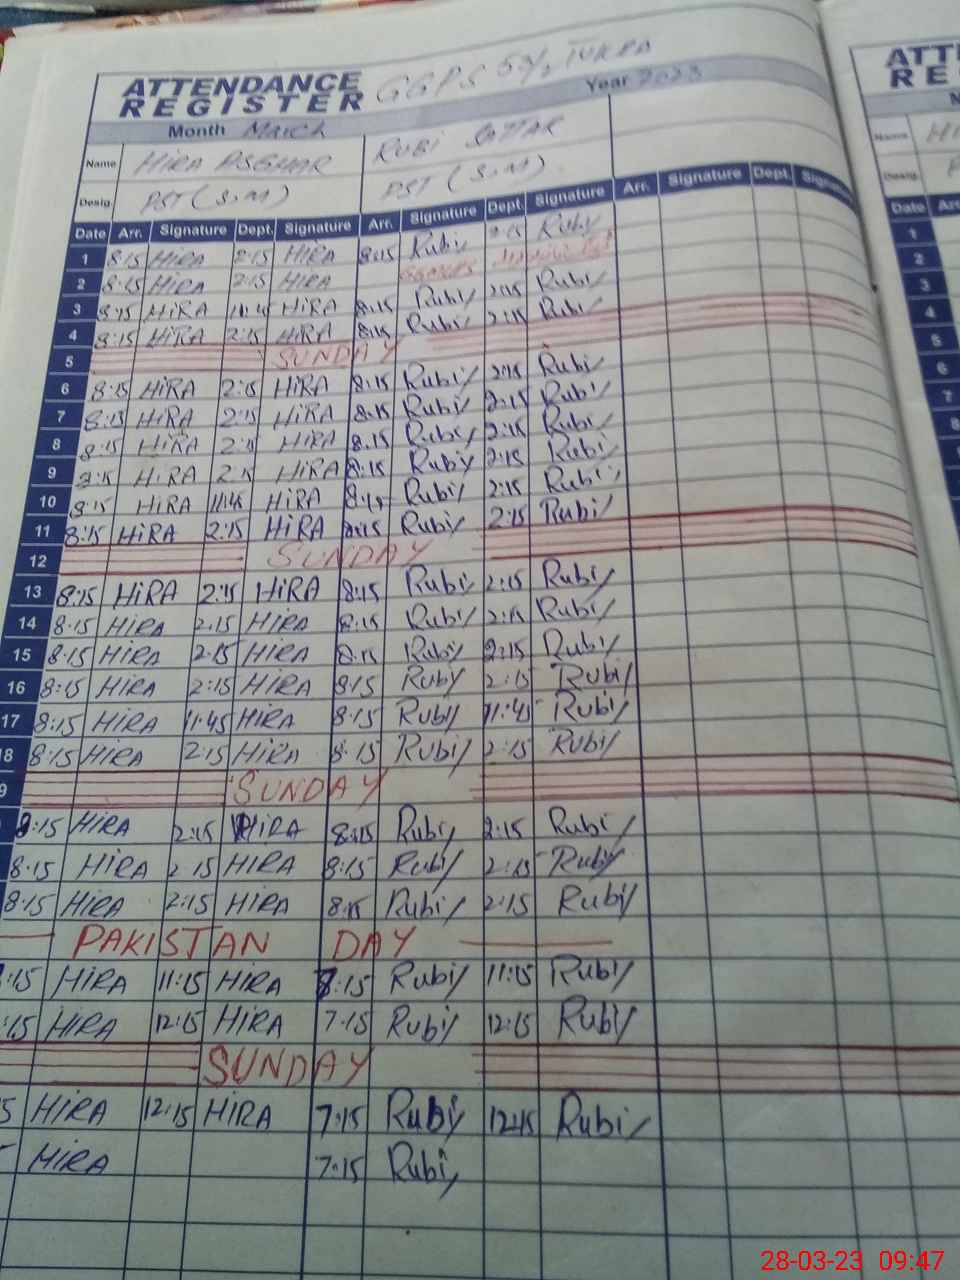 ATTENDANCE REGISTER GGPS 5 TUKRA
Month March Year 2023
Name HIRA ASGHAR RUBI SATTAR
Desig. PST (S.M) PST (S.M)
Date Arr. Signature Dept. Signature Arr. Signature Dept. Signature Arr. Signature Dept. Signature
1 8:15 HIRA 2:15 HIRA 8:15 Rubi 2:15 Ruby
2 8:15 HIRA 2:15 HIRA
3 8:15 HIRA 11:45 HIRA 8:15 Rubi 2:15 Rubi
4 8:15 HIRA 2:15 HIRA 8:15 Rubi 2:15 Rubi
5 SUNDAY
6 8:15 HIRA 2:15 HIRA 8:15 Rubi 2:15 Rubi
7 8:15 HIRA 2:15 HIRA 8:15 Rubi 2:15 Rubi
8 8:15 HIRA HIRA 8:15 Rubi 2:15 Rubi
9 HIRA 2:15 HIRA 8:15 Ruby 2:15 Rubi
10 8:15 HIRA 11:45 HIRA Rubi 2:15 Rubi
11 8:15 HIRA 2:15 HIRA Rubi 2:15 Rubi
12 SUNDAY
13 8:15 HIRA 2:15 HIRA 8:15 Rubi 2:15 Rubi
14 8:15 HIRA 2:15 HIRA 8:15 Rubi 2:15 Rubi
15 8:15 HIRA 2:15 HIRA 8:15 Rubi 2:15 Rubi
16 8:15 HIRA 2:15 HIRA 8:15 Ruby 2:15 Rubi
17 8:15 HIRA 11:45 HIRA 8:15 Rubi 11:45 Rubi
18 8:15 HIRA 2:15 HIRA 8:15 Rubi 2:15 Rubi
9 SUNDAY
8:15 HIRA 2:15 HIRA 8:15 Rubi 2:15 Rubi
8:15 HIRA 2:15 HIRA 8:15 Rubi 2:15 Ruby
8:15 HIRA 2:15 HIRA 8:15 Rubi 2:15 Rubi
PAKISTAN DAY
:15 HIRA 11:15 HIRA 8:15 Rubi 11:15 Rubi
:15 HIRA 12:15 HIRA 7:15 Rubi 12:15 Rubi
SUNDAY
5 HIRA 12:15 HIRA 7:15 Ruby 12:15 Rubi
HIRA 7:15 Rubi
ATTE
RE
Name
Desig.
Date Arr.
1
2
3
4
5
6
7
28-03-23 09:47